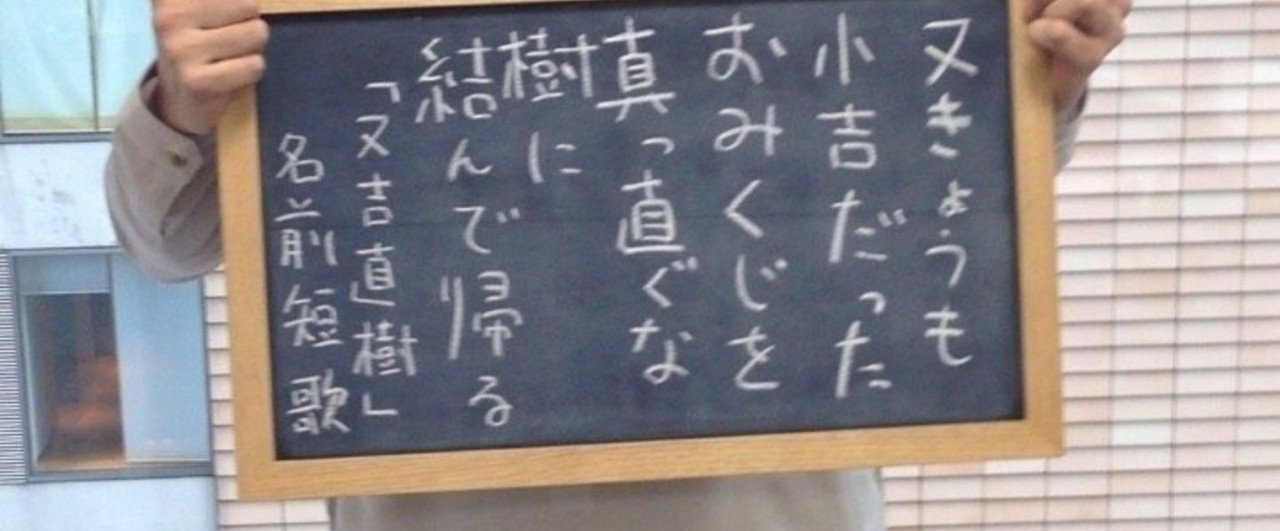 又きょうも
小吉だった
おみくじを
真っ直ぐな
樹に
結んで帰る
「又吉直樹」
名前短歌